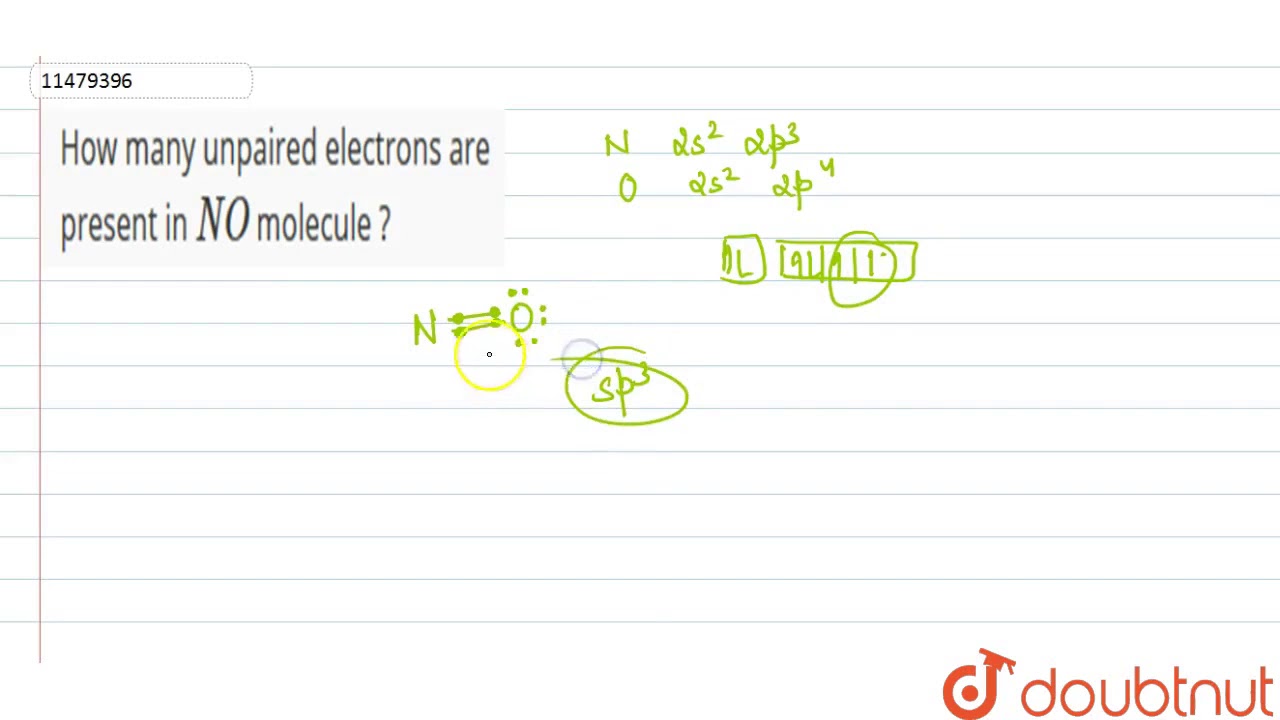 11479396
How many unpaired electrons are
present in NO molecule ?
N 2s² 2p³
O 2s² 2p⁴
N = O
sp³
doubtnut